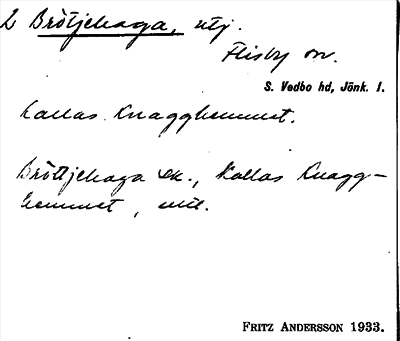 2 Brötjehaga, utj.
Flisby sn.
S. Vedbo hd, Jönk. l.
Kallas Knagghemmet.
Bröttjehaga ek., Kallas Knagg-
hemmet, utt.
FRITZ ANDERSSON 1933.